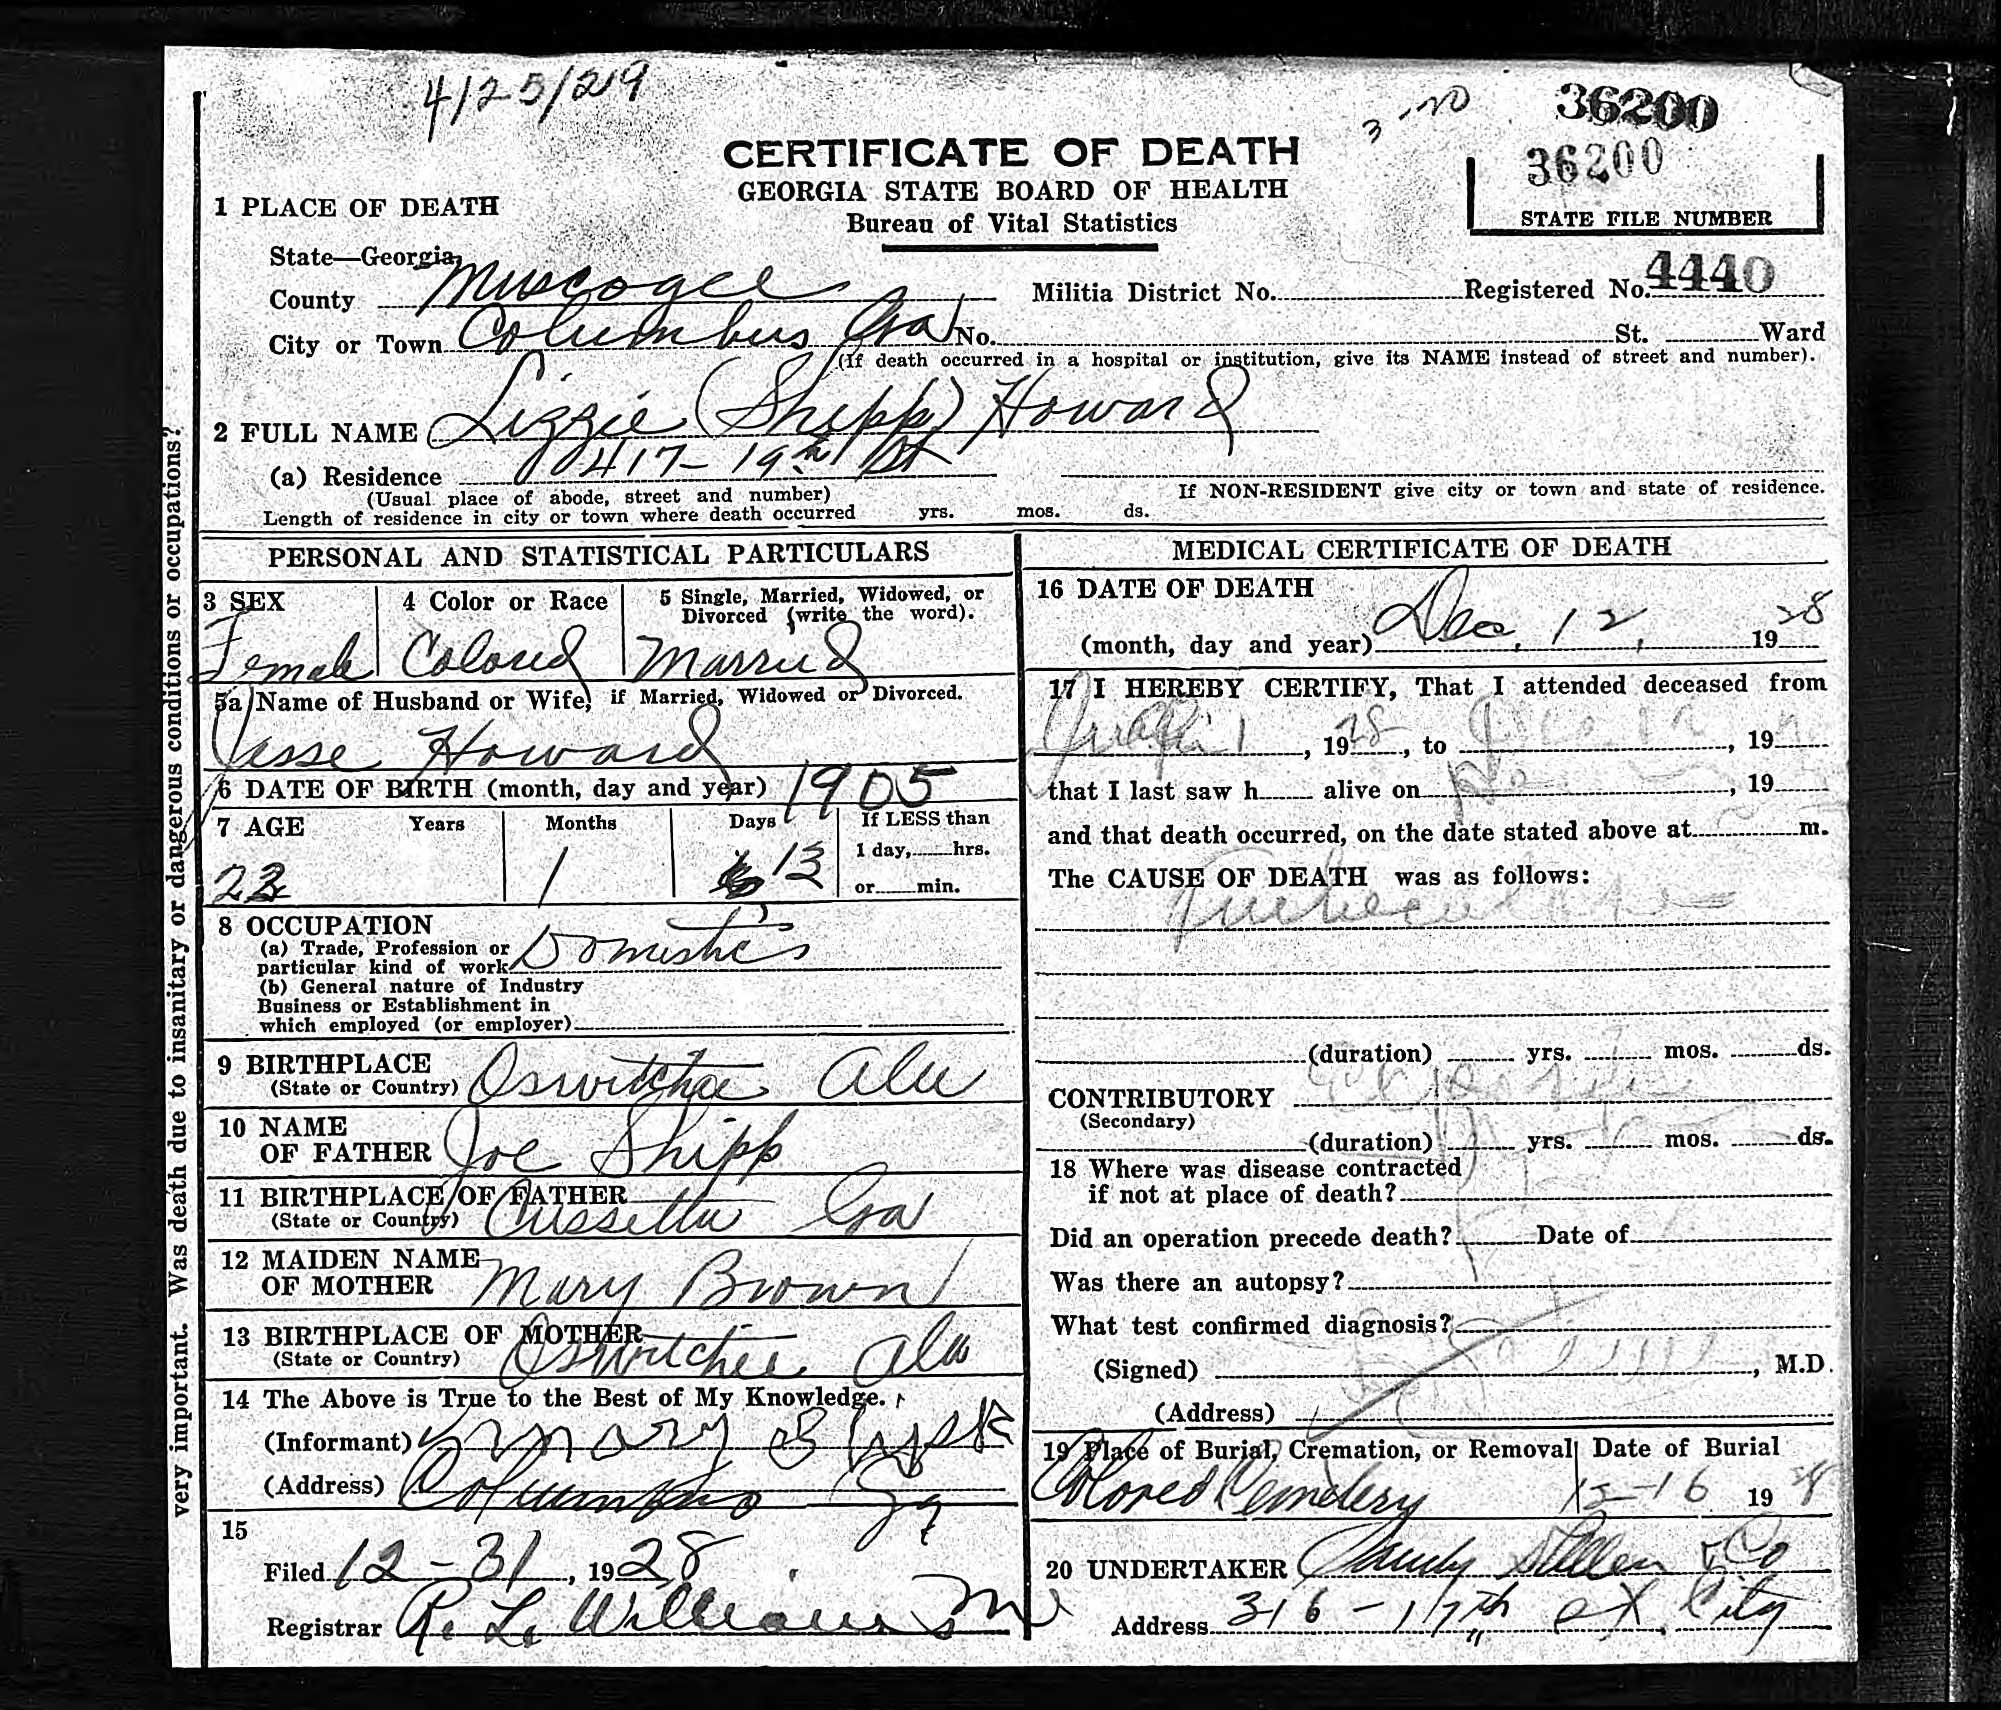 4/25/29
36200
CERTIFICATE OF DEATH
36200
GEORGIA STATE BOARD OF HEALTH
1 PLACE OF DEATH
Bureau of Vital Statistics
STATE FILE NUMBER
State—Georgia,
County Muscogee Militia District No. Registered No. 4440
City or Town Columbus Ga No. St. Ward
(If death occurred in a hospital or institution, give its NAME instead of street and number).
2 FULL NAME Lizzie (Shipp) Howard
(a) Residence 417-19th St
(Usual place of abode, street and number) If NON-RESIDENT give city or town and state of residence.
Length of residence in city or town where death occurred yrs. mos. ds.
very important. Was death due to insanitary or dangerous conditions or occupations?
PERSONAL AND STATISTICAL PARTICULARS
3 SEX 4 Color or Race 5 Single, Married, Widowed, or
Divorced (write the word).
Female Colored Married
5a Name of Husband or Wife, if Married, Widowed or Divorced.
Jesse Howard
6 DATE OF BIRTH (month, day and year) 1905
7 AGE Years Months Days If LESS than
1 day, hrs.
1 13
or min.
8 OCCUPATION
(a) Trade, Profession or
particular kind of work Domestic
(b) General nature of Industry
Business or Establishment in
which employed (or employer)
9 BIRTHPLACE
(State or Country) Oswitchee Ala
10 NAME
OF FATHER Joe Shipp
11 BIRTHPLACE OF FATHER
(State or Country) Cussetta Ga
12 MAIDEN NAME
OF MOTHER Mary Brown
13 BIRTHPLACE OF MOTHER
(State or Country) Oswitchee Ala
14 The Above is True to the Best of My Knowledge.
(Informant) Mary
(Address) Columbus Ga
15
Filed 12-31, 1928
Registrar R. L. Williams
MEDICAL CERTIFICATE OF DEATH
16 DATE OF DEATH
(month, day and year) Dec, 12, 1928
17 I HEREBY CERTIFY, That I attended deceased from
, 1928, to , 19
that I last saw h alive on , 19
and that death occurred, on the date stated above at m.
The CAUSE OF DEATH was as follows:
Tuberculosis
(duration) yrs. mos. ds.
CONTRIBUTORY
(Secondary)
(duration) yrs. mos. ds.
18 Where was disease contracted
if not at place of death?
Did an operation precede death? Date of
Was there an autopsy?
What test confirmed diagnosis?
(Signed) , M.D.
(Address)
19 Place of Burial, Cremation, or Removal Date of Burial
Colored Cemetery 12-16 1928
20 UNDERTAKER & Co
Address 316-17th st City